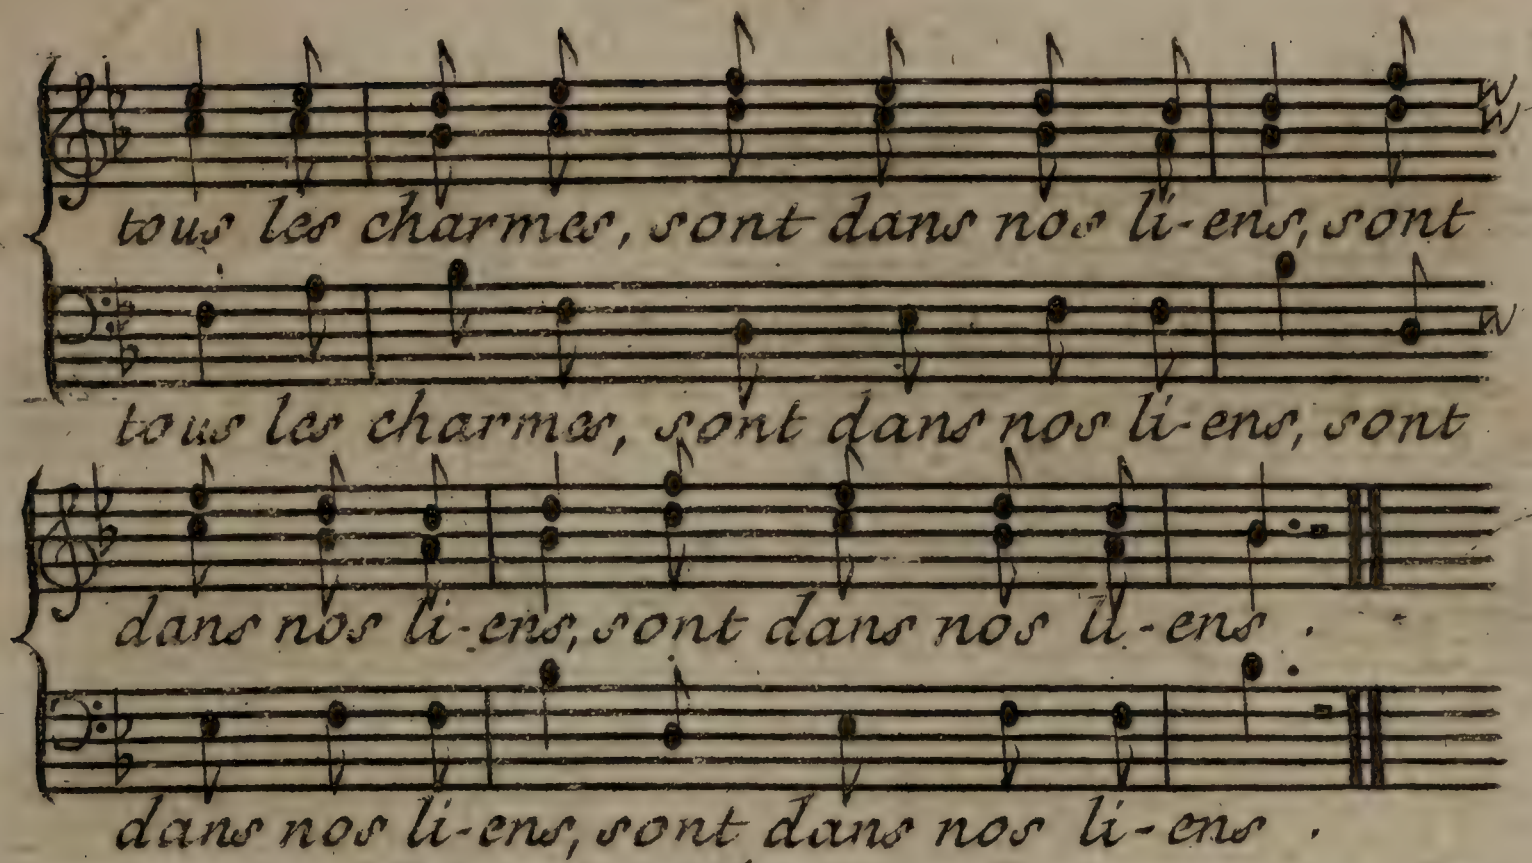 tous les charmes, sont dans nos li-ens, sont
tous les charmes, sont dans nos li-ens, sont
dans nos li-ens, sont dans nos li-ens.
dans nos li-ens, sont dans nos li-ens.